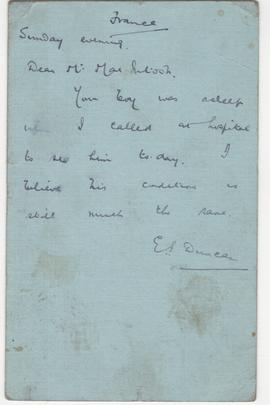 France
Sunday evening.
Dear Mr. MacIntosh.
Your boy was asleep
when I called at hospital
to see him to-day. I
believe his condition is
still much the same.
E.S. Duncan